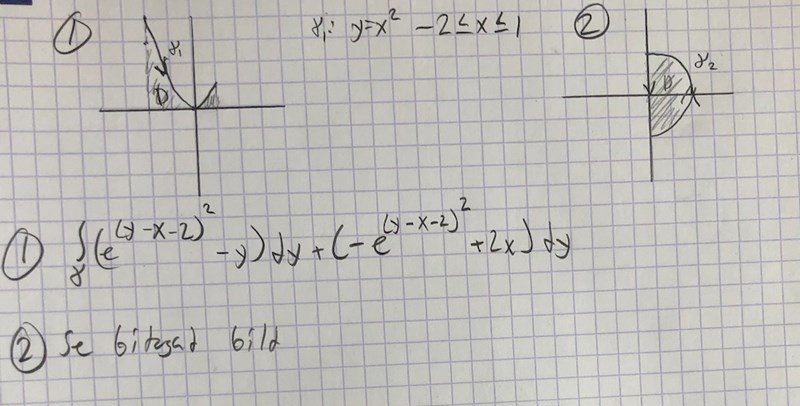 ① γ₁: y=x² -2≤x≤1 ②
γ₁ γ₂
D D
① ∫γ (e^(y-x-2)² -y) dy + (-e^(y-x-2)² +2x) dy
② Se bifogad bild